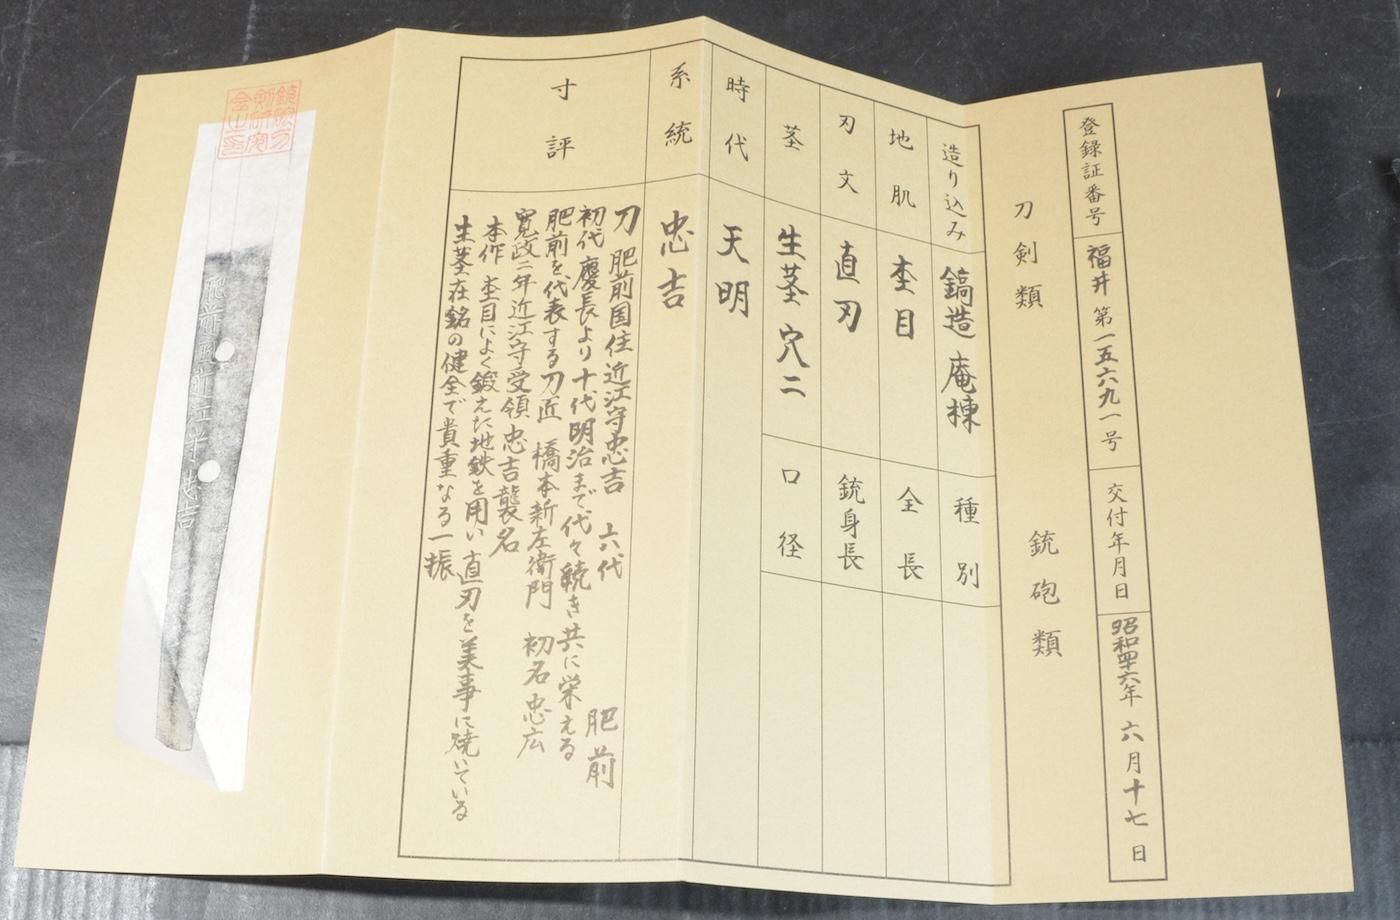 登録証番号 福井 第一五六九一号 交付年月日 昭和四六年 六月十七日
刀剣類 銃砲類
造り込み 鎬造 庵棟 種別
地肌 杢目 全長
刃文 直刃 銃身長
茎 生茎 穴二 口径
時代 天明
系統 忠吉
寸評
刀 肥前国住近江守忠吉 六代 肥前
初代慶長より十代明治まで代々続き共に栄える
肥前を代表する刀匠 橋本新左衛門 初名忠広
寛政二年近江守受領忠吉襲名
本作 杢目によく鍛えた地鉄を用い 直刃を美事に焼いている
生茎在銘の健全で貴重なる一振